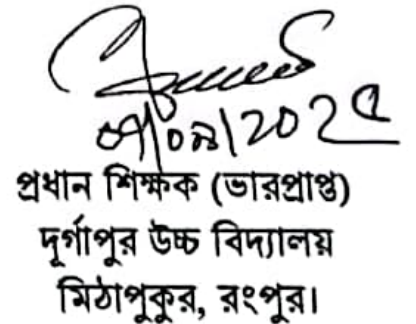 প্রধান শিক্ষক (ভারপ্রাপ্ত)
দূর্গাপুর উচ্চ বিদ্যালয়
মিঠাপুকুর, রংপুর।